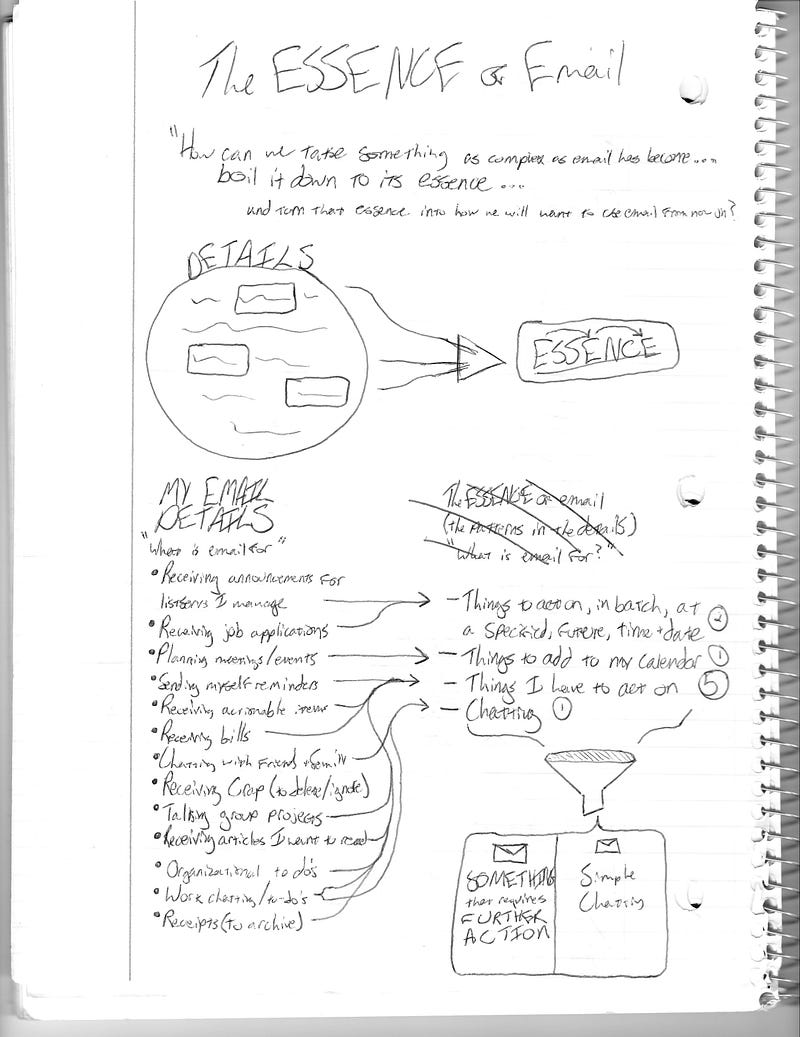 The ESSENCE of Email
"How can we take something as complex as email has become...
boil it down to its essence...
and turn that essence into how we will want to use email from now on?
DETAILS
ESSENCE
MY EMAIL
DETAILS
"What is email for"
• Receiving announcements for
listservs I manage
• Receiving job applications
• Planning meetings/events
• Sending myself reminders
• Receiving actionable items
• Receiving bills
• Chatting with friends + family
• Receiving Crap (to delete/ignore)
• Talking group projects
• Receiving articles I want to read
• Organizational to do's
• Work chatting/to-do's
• Receipts (to archive)
The ESSENCE of email
(the patterns in the details)
"What is email for?"
- Things to act on, in batch, at
a specified, future, time + date 2
- Things to add to my calendar 1
- Things I have to act on 5
- Chatting 1
SOMETHING
that requires
FURTHER
ACTION
Simple
Chatting